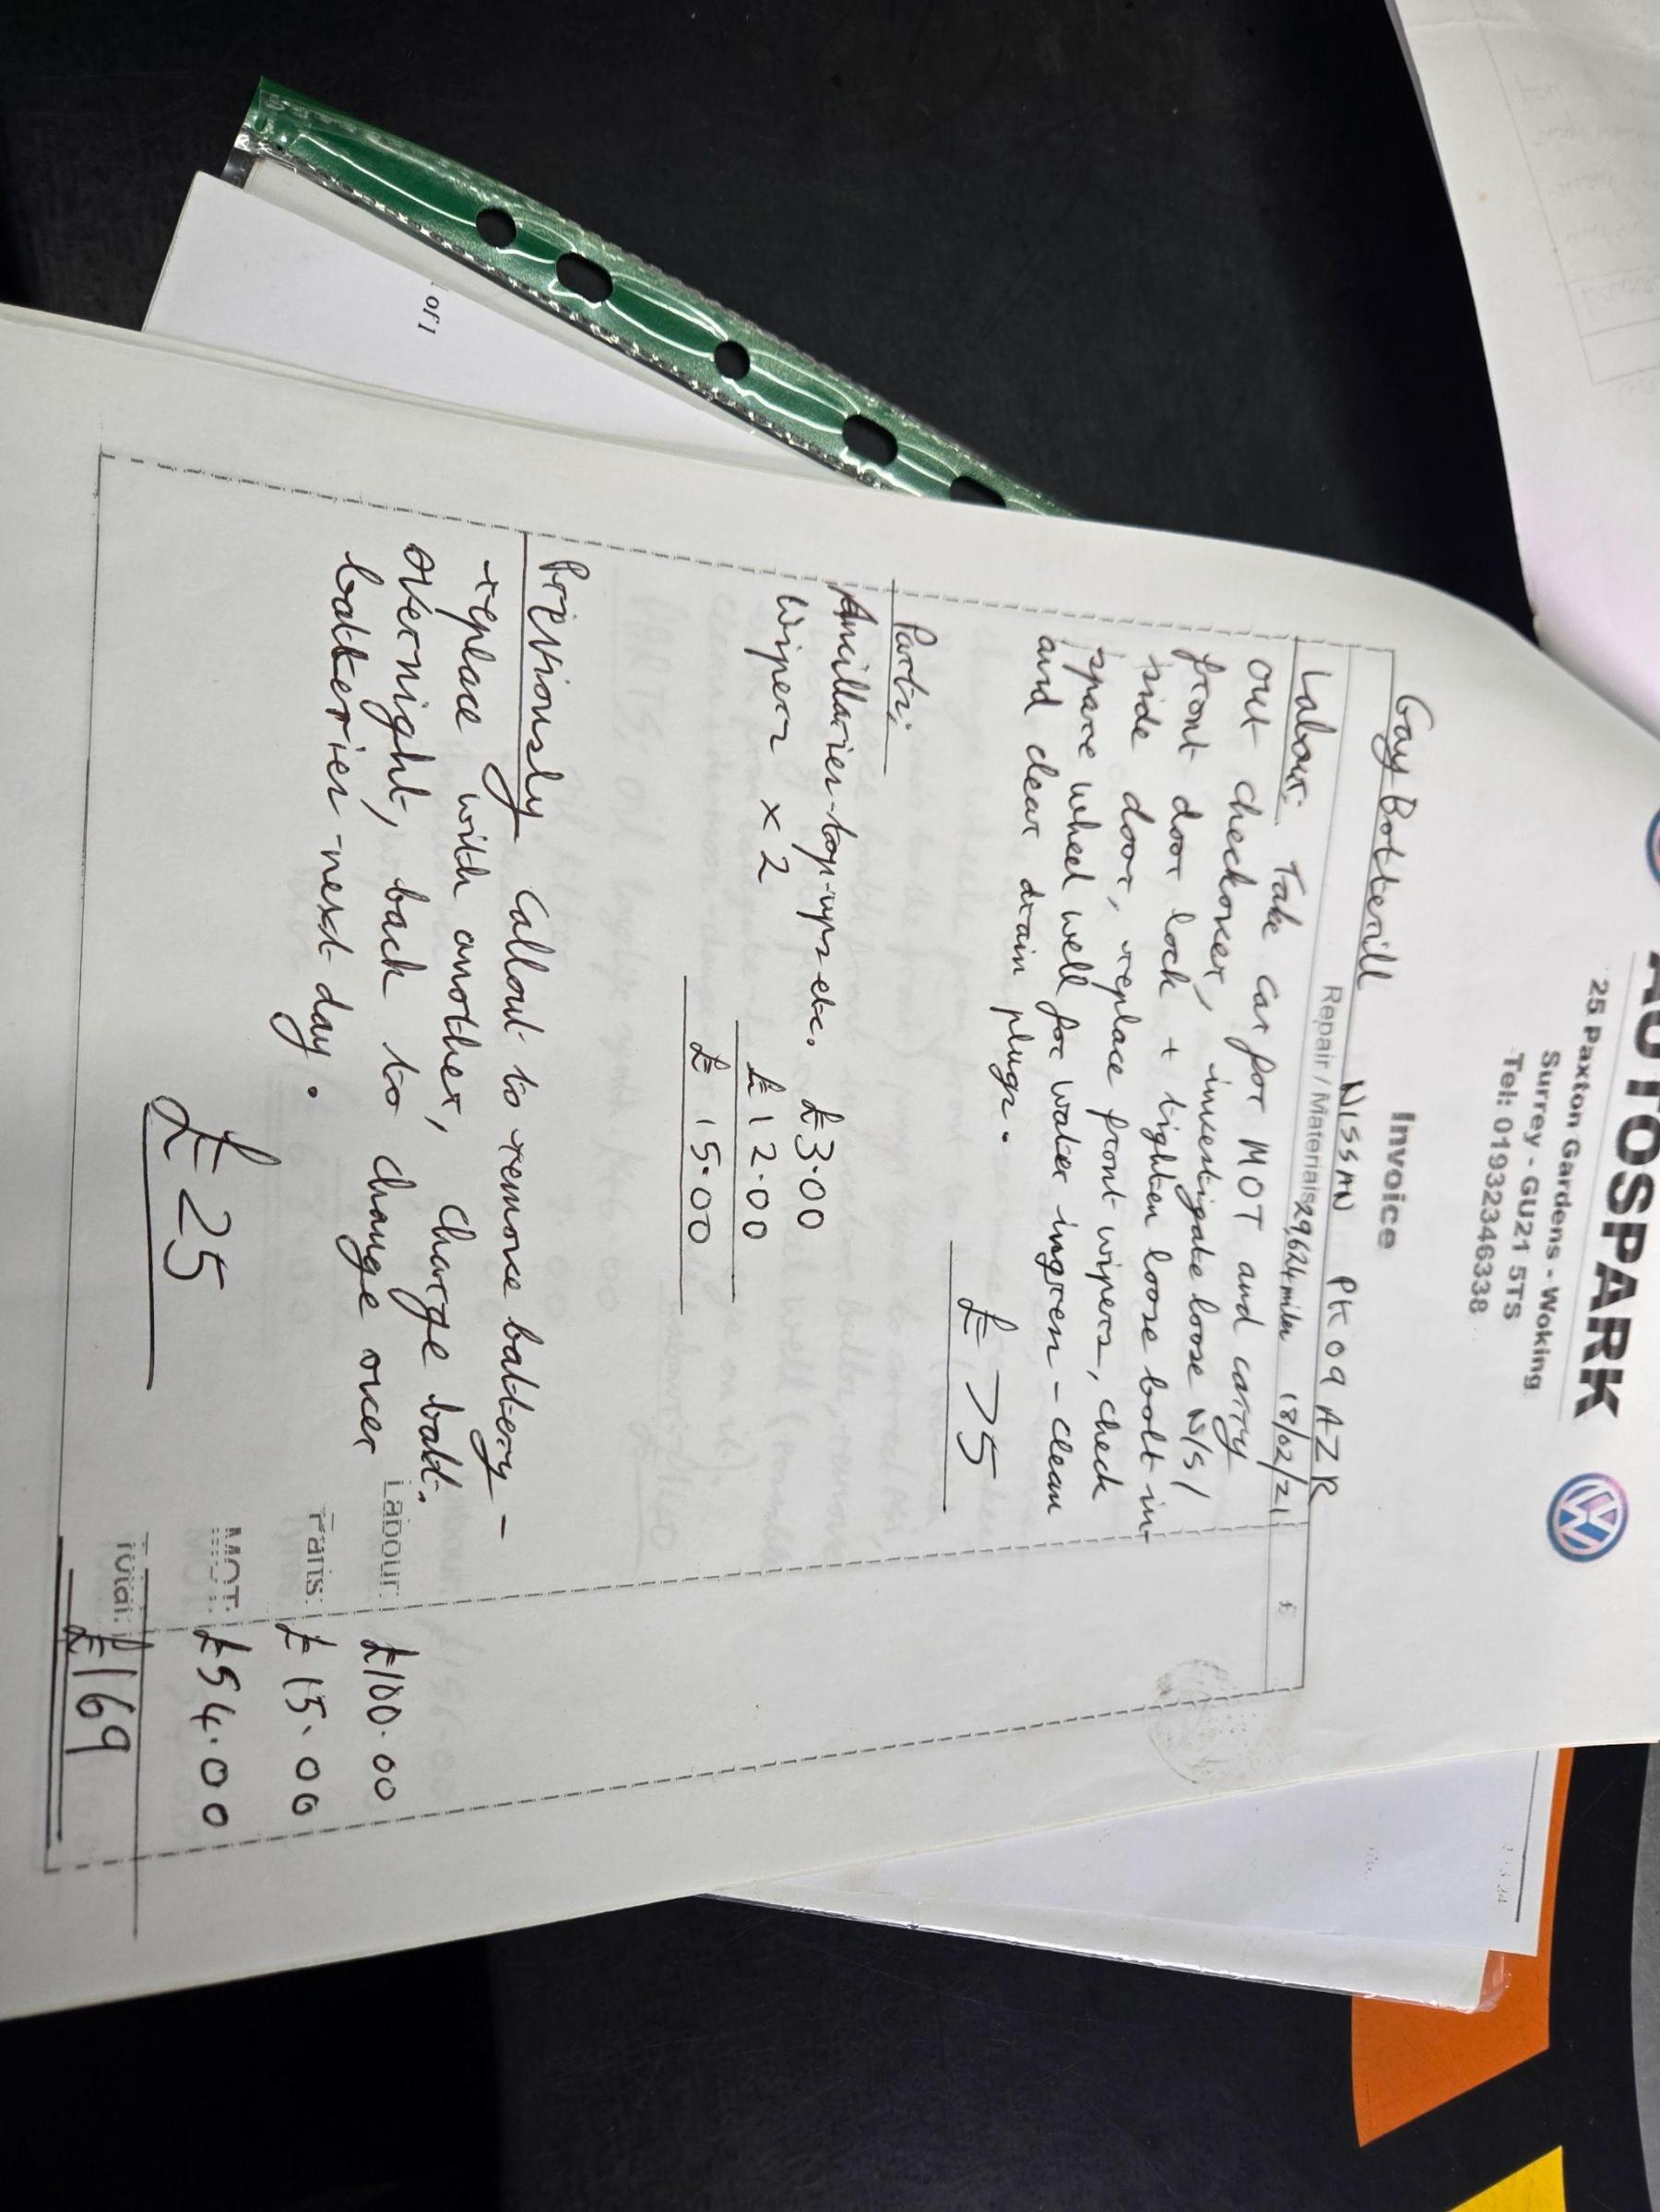 AUTOSPARK
25 Paxton Gardens - Woking
Surrey - GU21 5TS
Tel: 01932346338
Invoice
Gay Botterill NISSAN PK09 AZR
Repair / Materials 29,624 miles 18/02/21 £
Labour: Take car for MOT and carry
out checkover, investigate loose N/S/
front door lock + tighten loose bolt in
side door, replace front wipers, check
spare wheel well for water ingress - clean
and clear drain plugs.
£75
Parts:
Ancillaries - top-ups etc. £3.00
Wipers x 2 £12.00
£ 15.00
Previously callout to remove battery -
replace with another, charge batt.
overnight, back to change over
batteries next day.
£25
Labour: £100.00
Parts: £ 15.00
MOT: £54.00
Total: £169
of 1